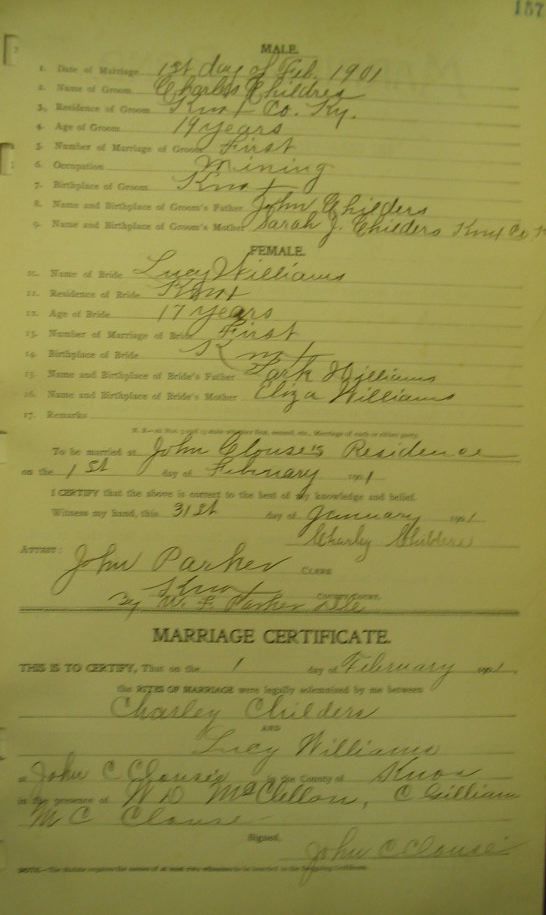 157
MALE.
1. Date of Marriage 1st day of Feb. 1901
2. Name of Groom Charles Childres
3. Residence of Groom Knox Co. Ky.
4. Age of Groom 19 years
5. Number of Marriage of Groom First
6. Occupation Mining
7. Birthplace of Groom Knox
8. Name and Birthplace of Groom's Father John Childers
9. Name and Birthplace of Groom's Mother Sarah J. Childers Knox Co
FEMALE.
10. Name of Bride Lucy Williams
11. Residence of Bride Knox
12. Age of Bride 17 years
13. Number of Marriage of Bride First
14. Birthplace of Bride Knox
15. Name and Birthplace of Bride's Father Williams
16. Name and Birthplace of Bride's Mother Eliza Williams
17. Remarks
To be married at John Clouse's Residence
on the 1st day of February 1901
I CERTIFY that the above is correct to the best of my knowledge and belief.
Witness my hand, this 31st day of January 1901
Charley Childers
ATTEST:
John Parker CLERK
Knox COUNTY COURT.
By W. F. Parker
MARRIAGE CERTIFICATE.
THIS IS TO CERTIFY, That on the 1 day of February 1901
the RITES OF MARRIAGE were legally solemnized by me between
Charley Childers
AND
Lucy Williams
at John C Clouse's in the County of Knox
in the presence of W D McClellon, C Gilliam
M C Clouse
Signed,
John C Clouse